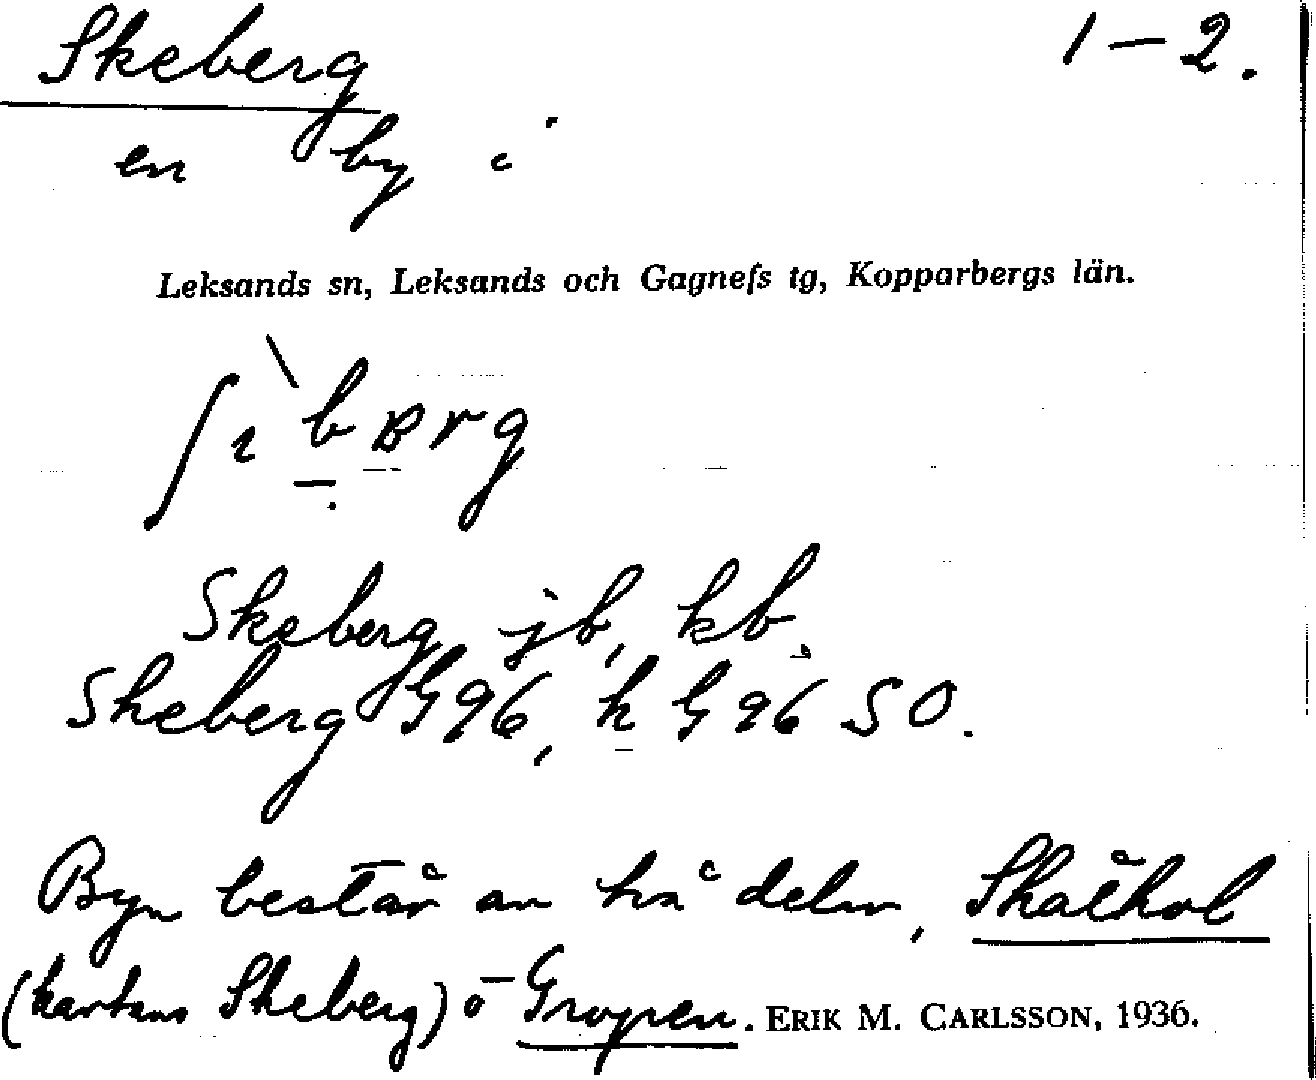 Skeberg 1–2.
en by i
Leksands sn, Leksands och Gagnefs tg, Kopparbergs län.
Skeberg jb, kb.
Skeberg G96, h G96 SO.
Byn består av två delar,
(kartans Skeberg) o Gropen. ERIK M. CARLSSON, 1936.